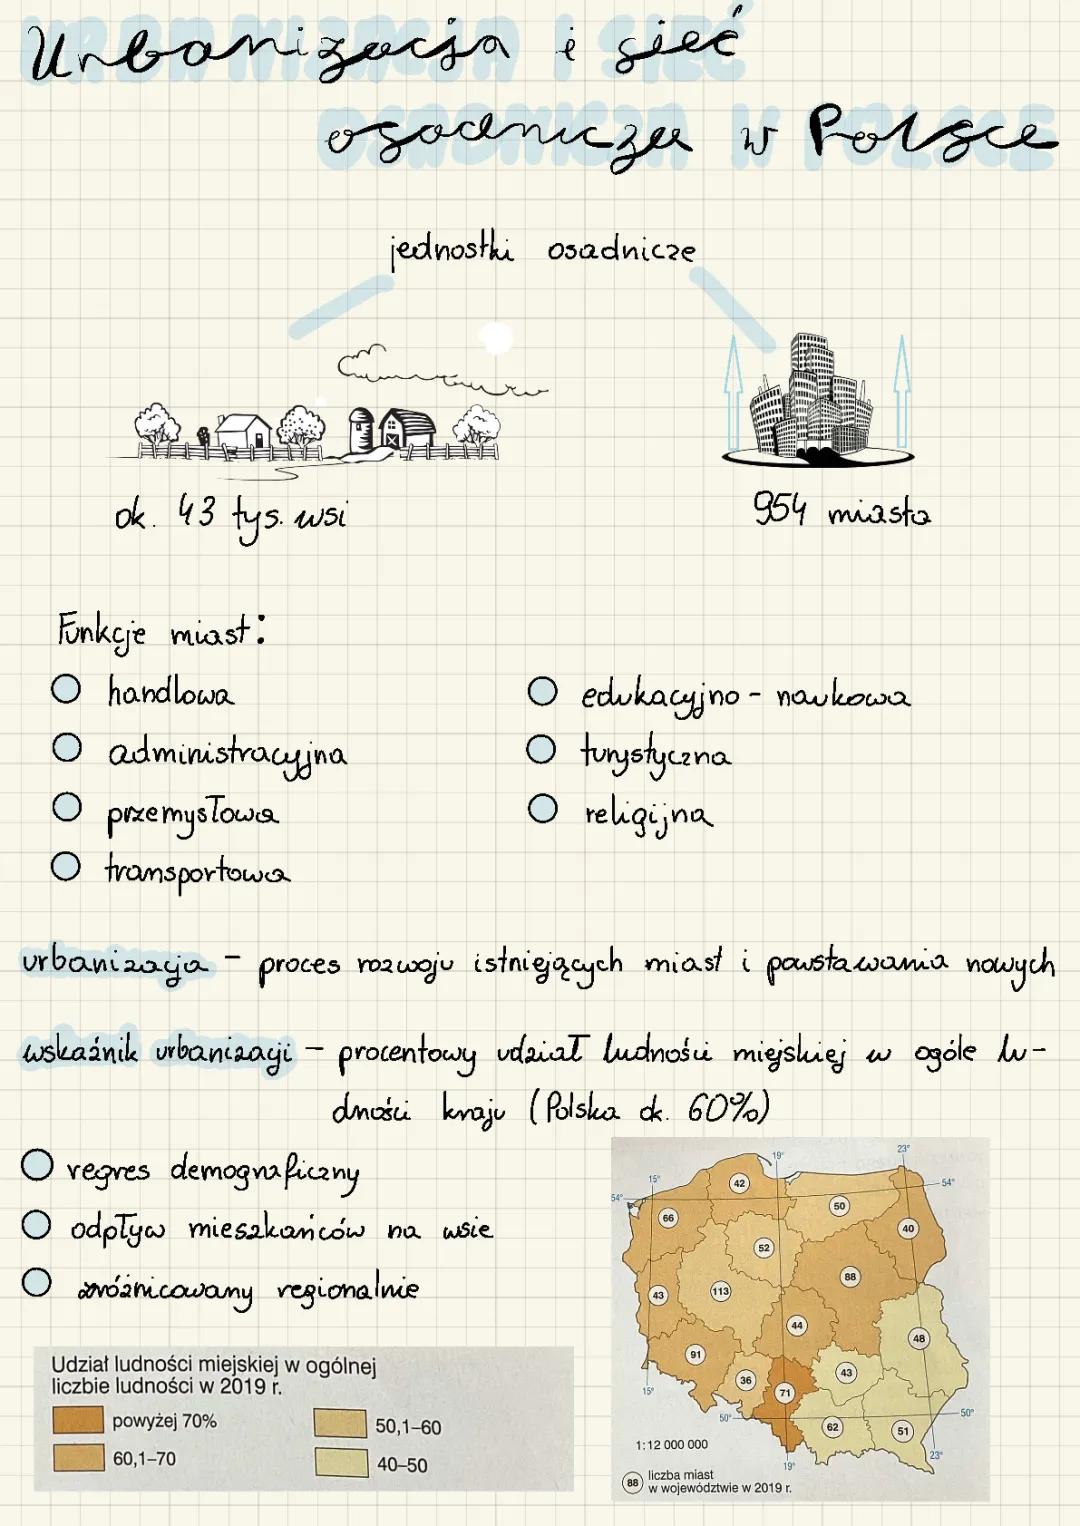 Urbanizacja i sieć
osadnicza w Polsce
jednostki osadnicze
ok. 43 tys. wsi
954 miasta
Funkcje miast:
handlowa
administracyjna
przemysłowa
transportowa
edukacyjno - naukowa
turystyczna
religijna
urbanizacja - proces rozwoju istniejących miast i powstawania nowych
wskaźnik urbanizacji - procentowy udział ludności miejskiej w ogóle lu-
dności kraju (Polska ok. 60%)
regres demograficzny
odpływ mieszkańców na wsie
zróżnicowany regionalnie
Udział ludności miejskiej w ogólnej
liczbie ludności w 2019 r.
powyżej 70%
60,1–70
50,1–60
40–50
19°
23°
15°
54°
54°
42
66
50
40
52
88
43
113
44
48
91
36
71
43
62
51
15°
50°
50°
23°
19°
1:12 000 000
88 liczba miast
w województwie w 2019 r.